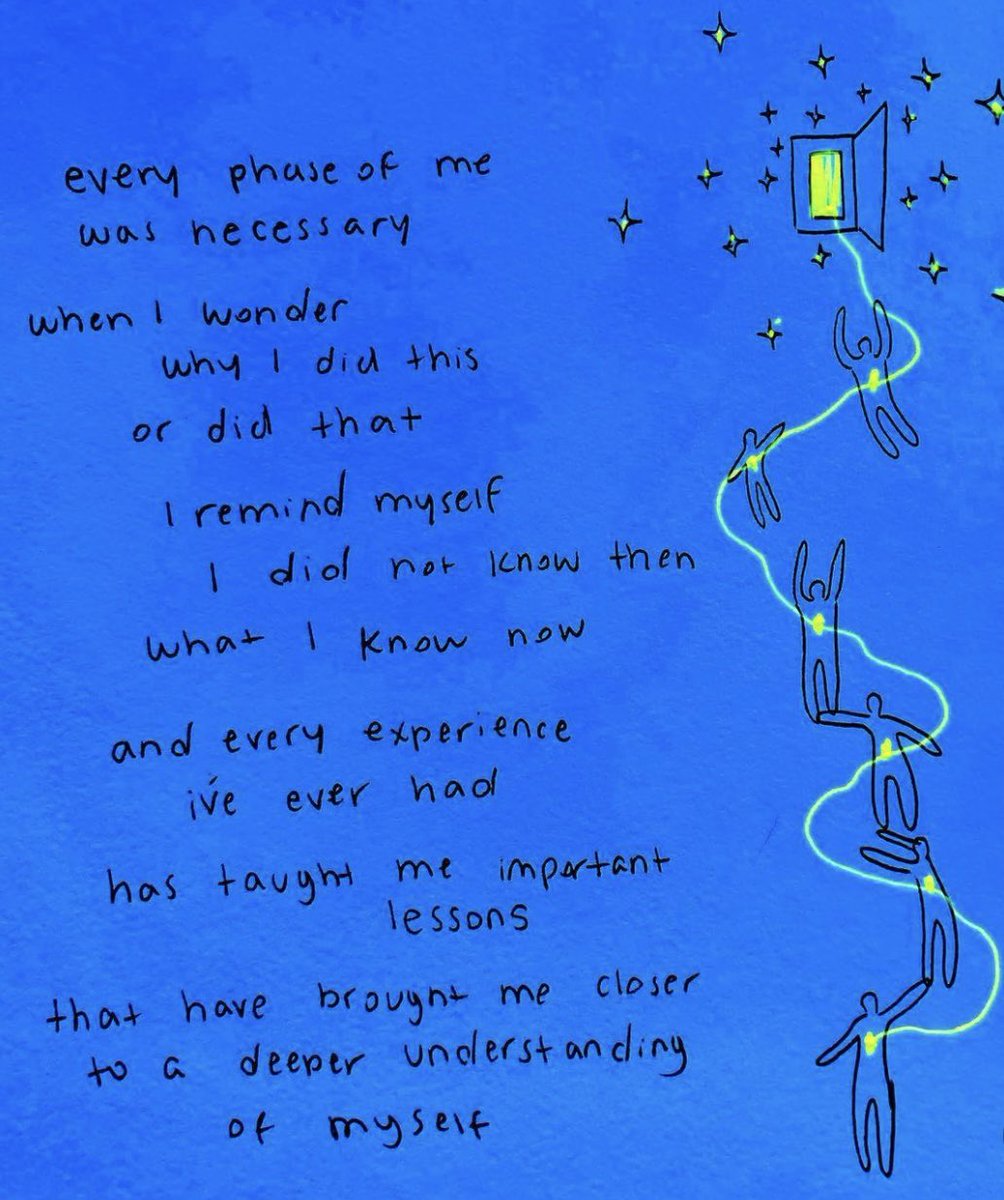 every phase of me
was necessary
when I wonder
why I did this
or did that
I remind myself
I did not know then
what I know now
and every experience
i've ever had
has taught me important
lessons
that have brought me closer
to a deeper understanding
of myself